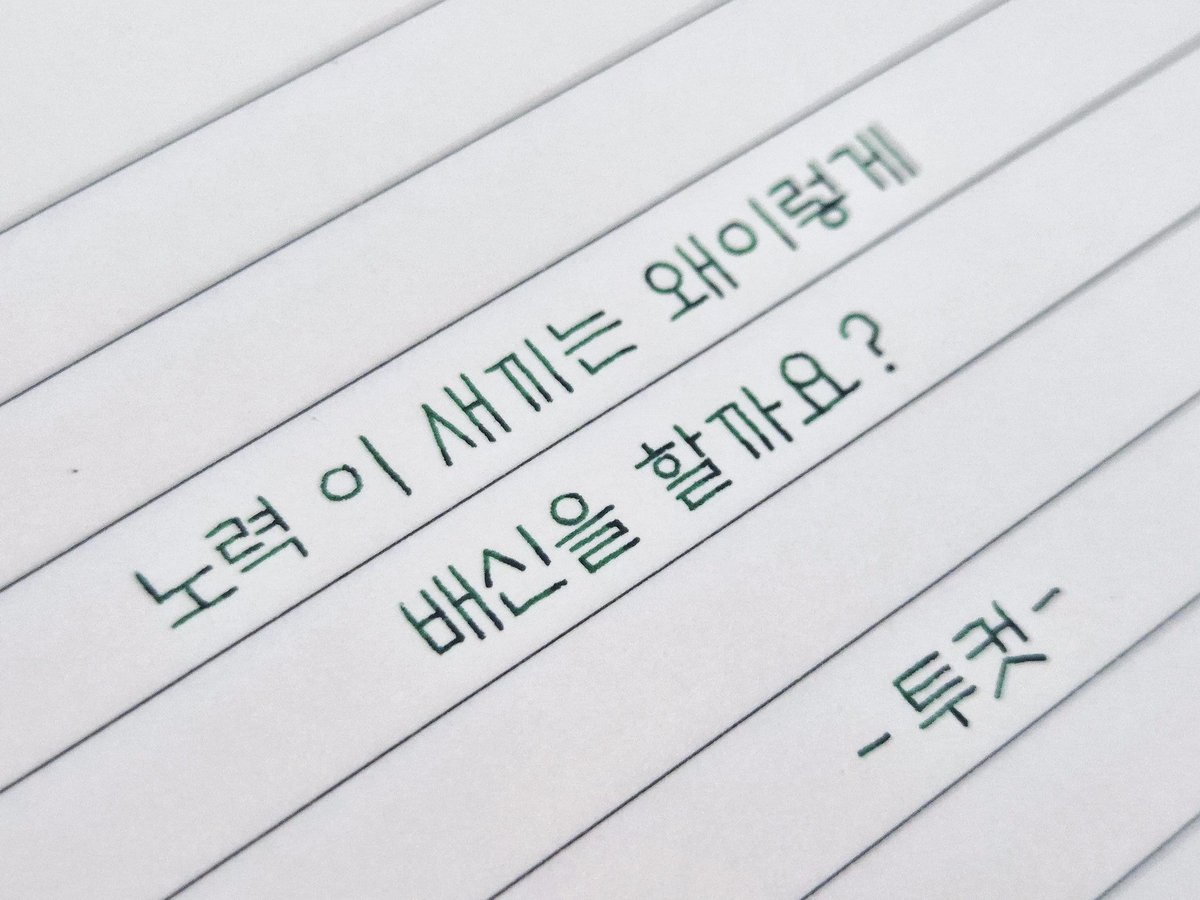 노력 이 새끼는 왜이렇게
배신을 할까요?
- 투컷 -